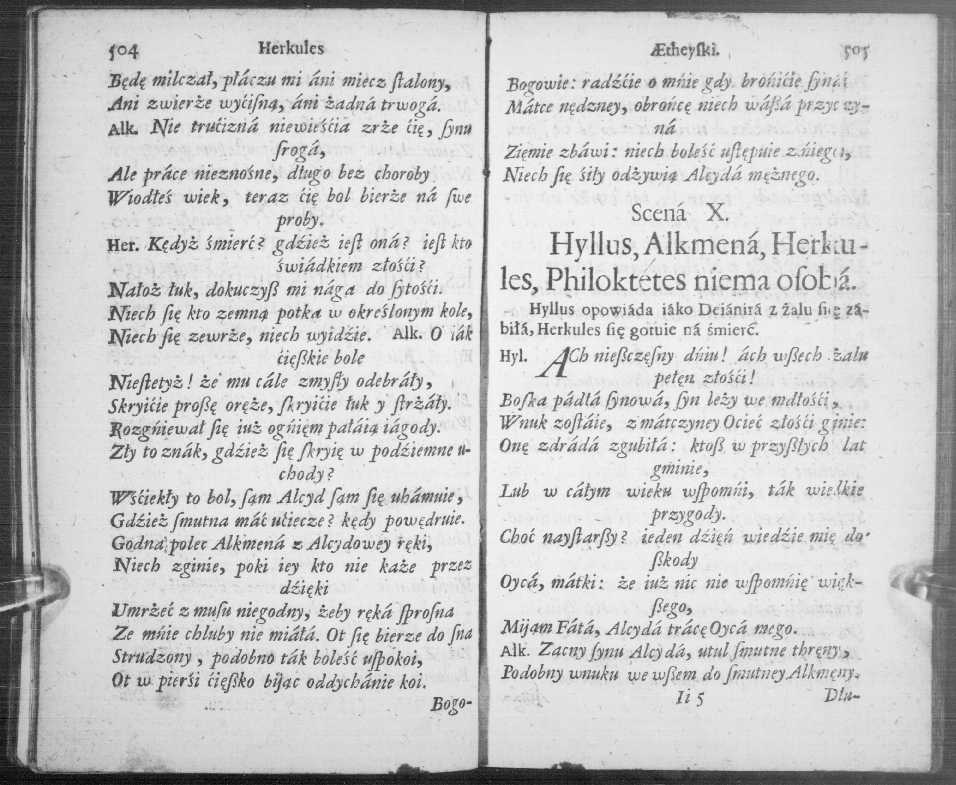 504 Herkules
Będę milczał, płáczu mi áni miecz ſtalony,
Ani zwierże wyćiſną, áni żadna trwogá.
Alk. Nie trućizná niewieśćia zrże ćię, ſynu
ſrogá,
Ale práce nieznośne, długo bez choroby
Wiodłeś wiek, teraz ćię bol bierże ná ſwe
proby.
Her. Kędyż śmierć? gdźież ieſt oná? ieſt kto
świádkiem złośći?
Nałoż łuk, dokuczyſz mi nága do ſytośći.
Niech ſię kto zemną potka w określonym kole,
Niech ſię zewrże, niech wyidźie. Alk. O iák
ćięſzkie bole
Nieſtetyż! że mu cále zmyſły odebráły,
Skryićie proſzę oręże, ſkryićie łuk y ſtrżáły.
Rozgńiewał ſię iuż ogńięm pałáią iágody.
Zły to znák, gdźież ſię ſkryię w podźiemne u-
chody?
Wśćiekły to bol, ſąm Alcyd ſam ſię uhámuie,
Gdźież ſmutna máć ućiecze? kędy powędruie.
Godna polec Alkmená z Alcydowey ręki,
Niech zginie, poki iey kto nie każe przez
dźięki
Umrżeć z muſu niegodny, żeby ręká ſproſna
Ze mńie chluby nie miáłá. Ot ſię bierze do ſna
Strudzony, podobno ták boleść uſpokoi,
Ot w pierśi ćięſzko biiąc oddychánie koi.
Bogo-
Ætheyſki. 505
Bogowie: radźćie o mńie gdy brońićie ſyná
Mátce nędzney, obrońcę niech wáſzá przyczy-
ná
Ziemie zbáwi: niech boleść uſtępuie z niego,
Niech ſię śiły odżywią Alcydá mężnego.
Scená X.
Hyllus, Alkmená, Herku-
les, Philoktetes niema oſobá.
Hyllus opowiáda iáko Deiánirá z żalu ſię zá-
biłá, Herkules ſię gotuie ná śmierć.
Hyl. ACh nieſzczęſny dńiu! ách wſzech żalu
pełęn złośći!
Boſka pádłá ſynowá, ſyn leży we mdłośći,
Wnuk zoſtáie, z mátczyney Oćieć złośći ginie:
Onę zdrádá zgubiłá: ktoſz w przyſzłych lat
gminie,
Lub w cáłym wieku wſpomńi, ták wielkie
przygody.
Choć nayſtarſzy? ieden dźięń wiedźie mię do
ſzkody
Oycá, mátki: że iuż nic nie wſpomńię więk-
ſzego,
Mijam Fátá, Alcydá trácę Oycá mego.
Alk. Zacny ſynu Alcydá, utul ſmutne thręny,
Podobny wnuku we wſzem do ſmutney Alkmęny.
Ii 5 Dłu-